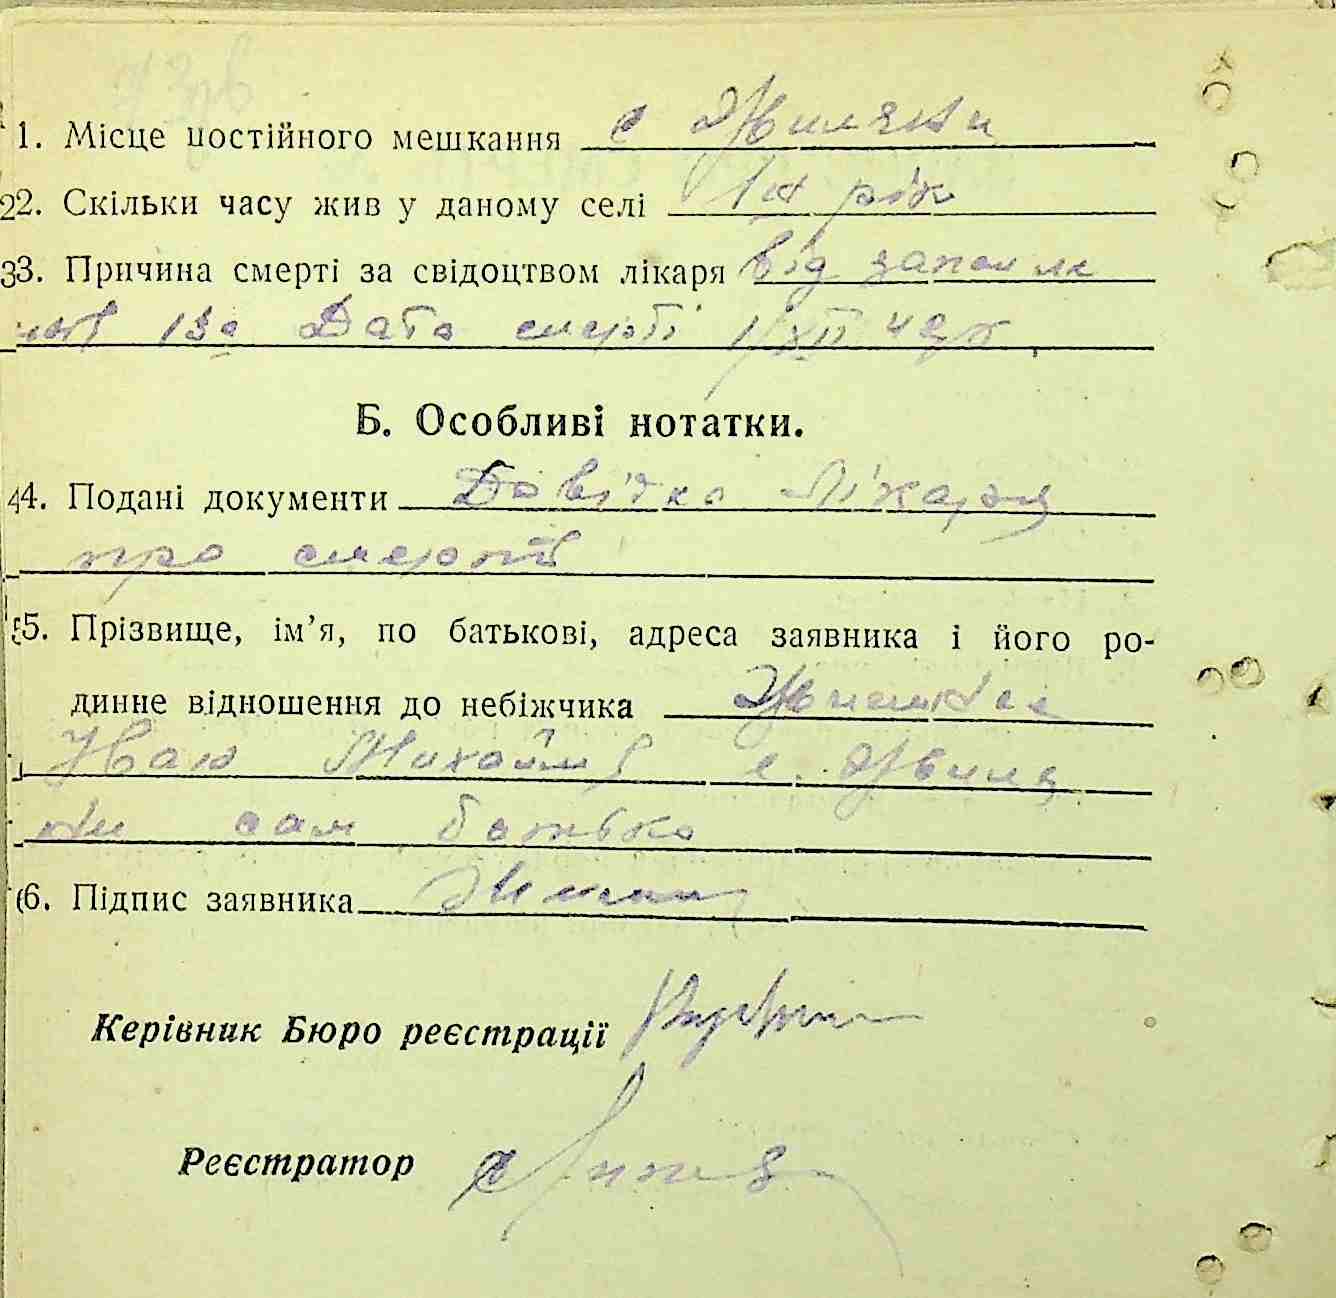 1. Місце постійного мешкання с Жиляки
22. Скільки часу жив у даному селі 1й рік
33. Причина смерті за свідоцтвом лікаря від запален
Дата смерті 1/XII 42 р
Б. Особливі нотатки.
44. Подані документи Довідка Лікаря
про смерть
55. Прізвище, ім’я, по батькові, адреса заявника і його ро-
динне відношення до небіжчика
Іван Михайлів с. Жиля
ки сам батько
66. Підпис заявника
Керівник Бюро реєстрації
Реєстратор